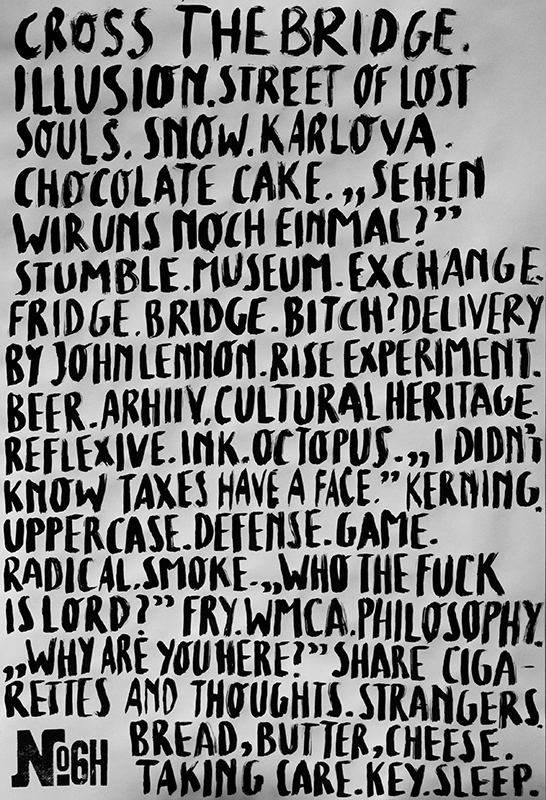 CROSS THE BRIDGE.
ILLUSION. STREET OF LOST
SOULS. SNOW. KARLOVA.
CHOCOLATE CAKE. „SEHEN
WIR UNS NOCH EINMAL?”
STUMBLE. MUSEUM. EXCHANGE.
FRIDGE. BRIDGE. BITCH? DELIVERY
BY JOHN LENNON. RISE EXPERIMENT.
BEER. ARHIIV. CULTURAL HERITAGE.
REFLEXIVE. INK. OCTOPUS. „I DIDN'T
KNOW TAXES HAVE A FACE.” KERNING.
UPPERCASE. DEFENSE. GAME.
RADICAL. SMOKE. „WHO THE FUCK
IS LORD?” FRY. WMCA. PHILOSOPHY.
„WHY ARE YOU HERE?” SHARE CIGA-
RETTES AND THOUGHTS. STRANGERS.
BREAD, BUTTER, CHEESE.
TAKING CARE. KEY. SLEEP.
No6H